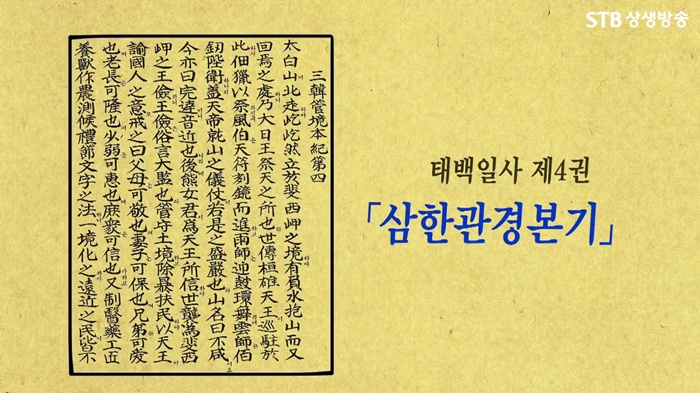 STB 상생방송
三韓管境本紀第四
太白山北走屹屹然立於斐西岬之境有負水抱山而又
回焉之處乃大日王祭天之所也世傳桓雄天王巡駐於
此佃獵以祭風伯天符刻鏡而進雨師迎鼓環舞雲師佰
釰陛衛盖天帝就山之儀仗若是之盛嚴也山名曰不咸
今亦曰完達音近也後熊女君爲天王所信世襲爲斐西
岬之王儉王儉俗言大監也管守土境除暴扶民以天王
諭國人之意戒之曰父母可敬也妻子可保也兄弟可愛
也老長可隆也少弱可惠也庶衆可信也又制醫藥工匠
養獸作農測候禮節文字之法一境化之遠近之民皆不
태백일사 제4권
「삼한관경본기」